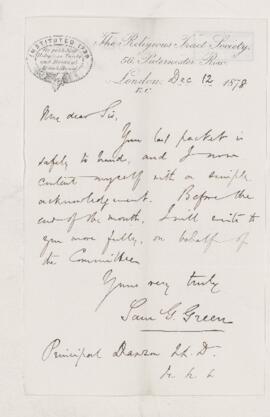 INSTITUTED 1799
The Religious Tract Society,
56, Paternoster Row,
London, Dec 12 1878
E.C.
My dear Sir,
Your last packet is
safely to hand, and I now
content myself with a simple
acknowledgement. Before the
end of the month, I will write to
you more fully, on behalf of
the Committee
Yours very truly
Sam G. Green
Principal Dawson LL. D.